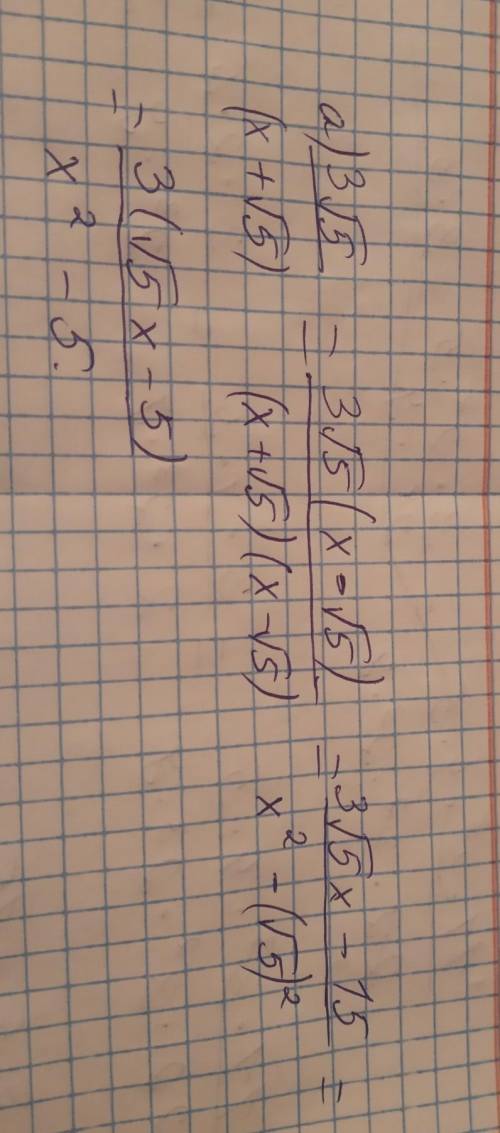 а) 3√5 / (x + √5) = 3√5 (x - √5) / (x + √5) (x - √5) = 3√5x - 15 / x² - (√5)² =
= 3(√5x - 5) / x² - 5.